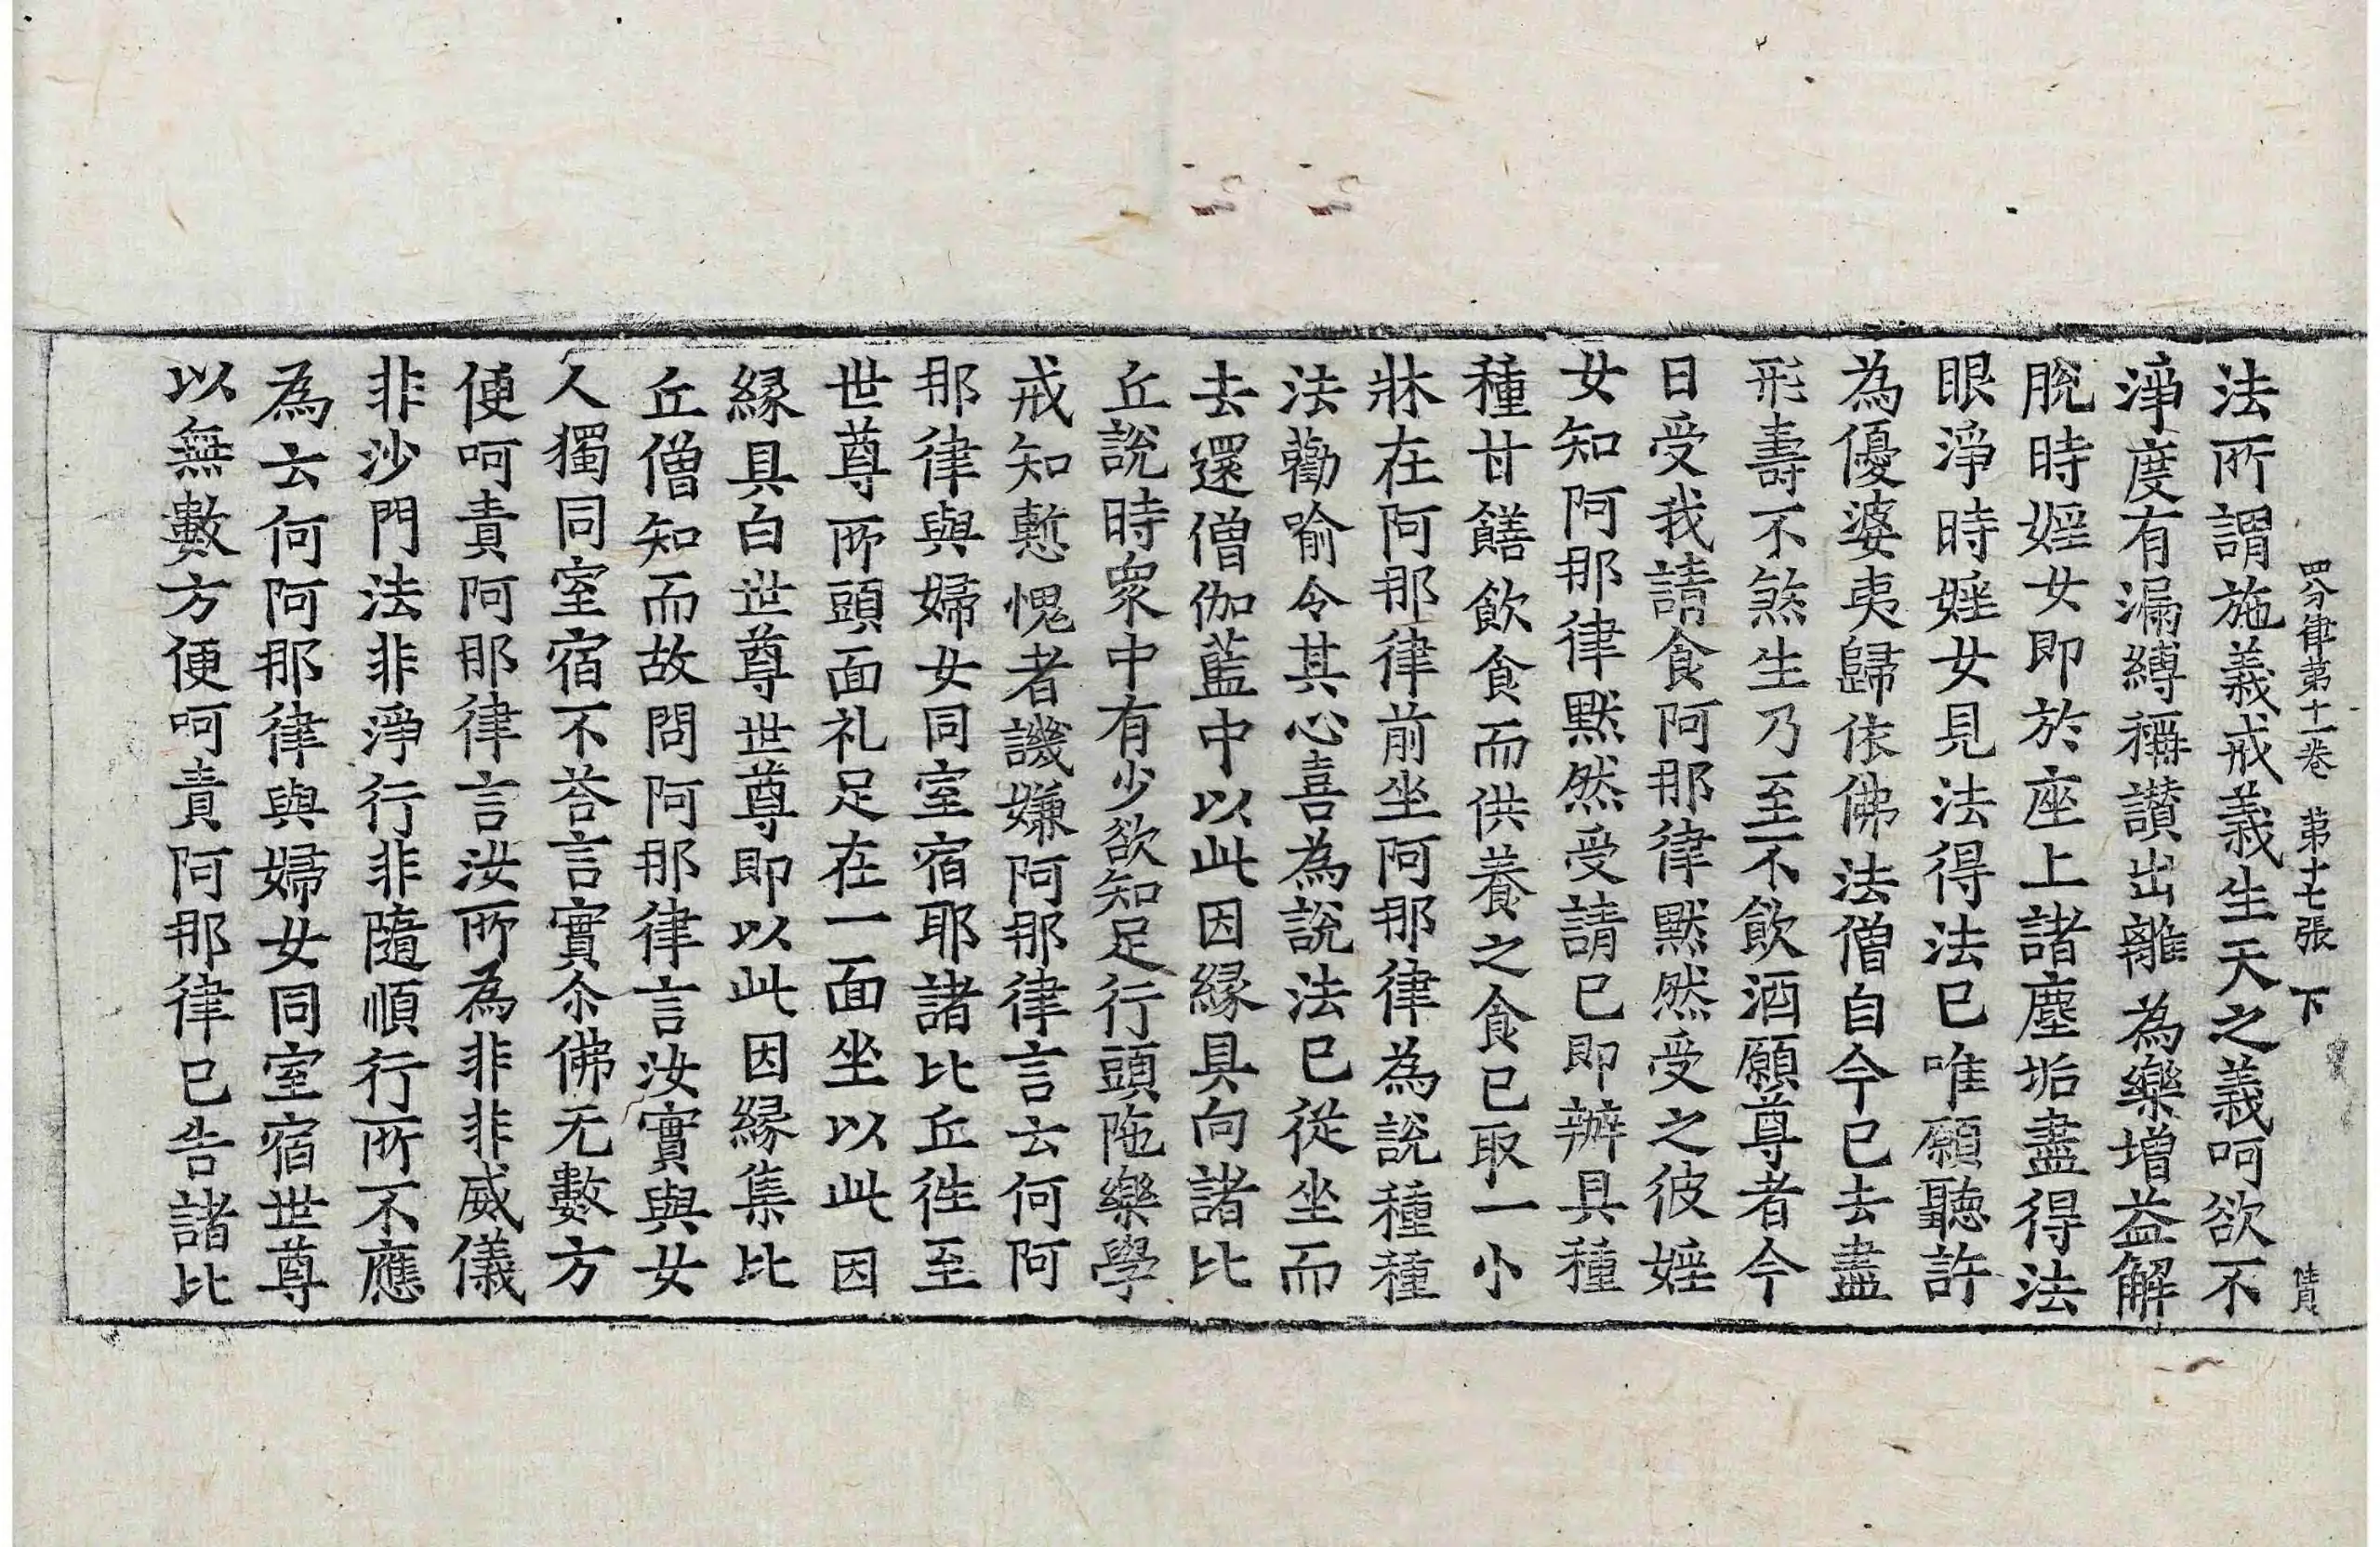 四分律第十一卷　第十七張　下
法所謂施義戒義生天之義呵欲不
淨度有漏縛稱讃出離為樂增益解
脫時婬女即於座上諸塵垢盡得法
眼淨時婬女見法得法已唯願聽許
為優婆夷歸依佛法僧自今已去盡
形壽不煞生乃至不飲酒願尊者今
日受我請食阿那律默然受之彼婬
女知阿那律默然受請已即辦具種
種甘饍飲食而供養之食已取一小
牀在阿那律前坐阿那律為說種種
法勸喻令其心喜為說法已從坐而
去還僧伽藍中以此因緣具向諸比
丘說時衆中有少欲知足行頭陁樂學
戒知慙愧者譏嫌阿那律言云何阿
那律與婦女同室宿耶諸比丘徃至
世尊所頭面礼足在一面坐以此因
緣具白世尊世尊即以此因緣集比
丘僧知而故問阿那律言汝實與女
人獨同室宿不荅言實尒佛无數方
便呵責阿那律言汝所為非非威儀
非沙門法非淨行非隨順行所不應
為云何阿那律與婦女同室宿世尊
以無數方便呵責阿那律已告諸比